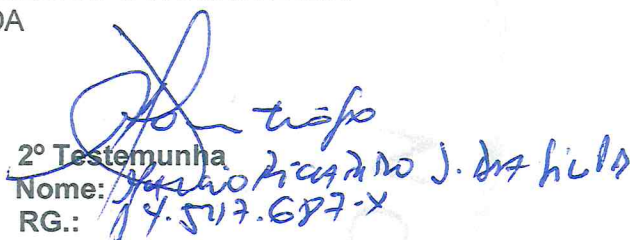 DA
2º Testemunha
Nome: RICARDO J. DA SILVA
RG.: 14.547.687-X